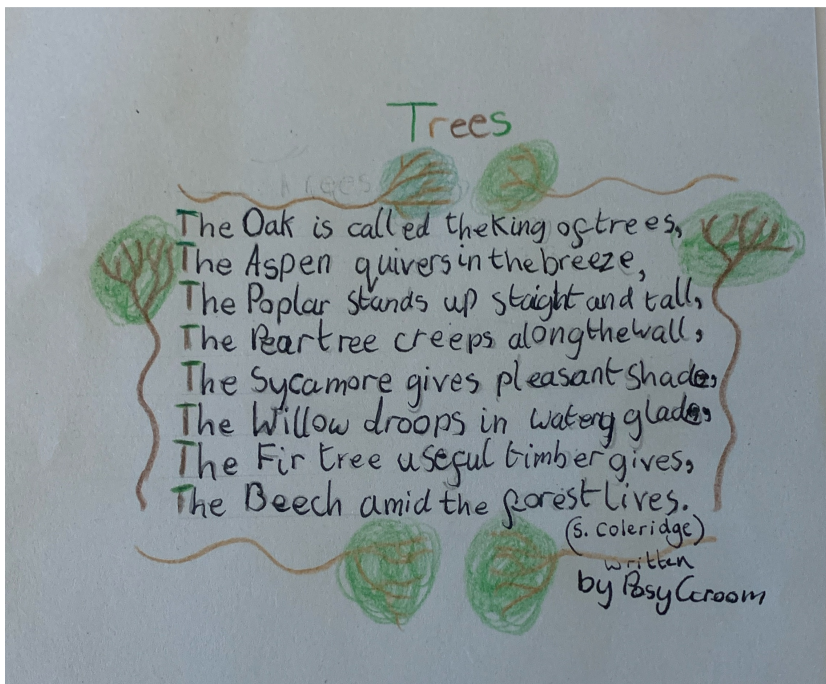 Trees
The Oak is called the King of trees,
The Aspen quivers in the breeze,
The Poplar stands up staight and tall,
The Peartree creeps along the wall,
The Sycamore gives pleasant shade,
The Willow droops in watery glade,
The Fir tree useful timber gives,
The Beech amid the forest lives.
(S. Coleridge)
written
by Posy Groom